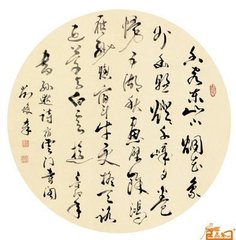 香閣東山下煙花象
外幽懸燈千嶂夕卷
幔五湖秋畫壁餘鴻
雁紗窗宿斗牛更疑天路
近夢與白雲遊
書孫逖詩宿雲門寺閣